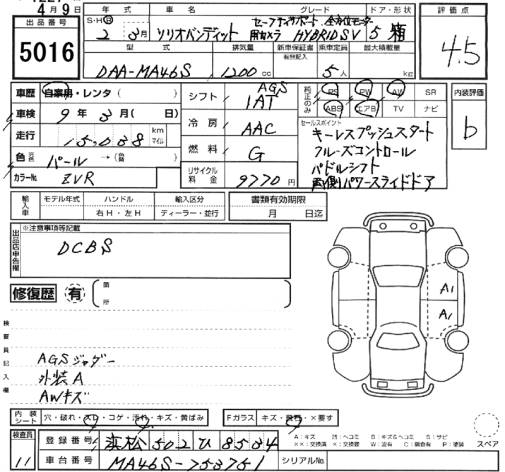 4月9日
出品番号
5016
年式 車名 グレード ドア・形状
S・H
2年 3月 ソリオバンディット セーフティサポート 全方位モニター用カメラ HYBRID SV 5 箱
型式 排気量 新車保証書 乗車定員 最大積載量
有効記入
DAA-MA46S 1200cc 5人 kg
評価点
4.5
車歴 自家用・レンタ( )
車検 9年3月( 日)
走行 15,038 km マイル
色 元色 パール →(色替)
カラーNo. ZVR
シフト AGS 1AT
冷房 AAC
燃料 G
リサイクル料金 9770円
純正のみ PS PW AW SR
ABS エアB TV ナビ
セールスポイント
キーレスプッシュスタート
クルーズコントロール
パドルシフト
両側パワースライドドア
内装評価
b
輸入車 モデル年式 ハンドル 輸入区分
右H・左H ディーラー・並行
書類有効期限
月 日迄
出品店申告欄
※注意事項等記載
DCBS
修復歴 有 箇所
検査員記入欄
AGSジャダー
外装A
AWキズ
A1
A1
内装シート 穴・破れ・スレ・コゲ・汚れ・キズ・黄ばみ
Fガラス キズ・・要す
検査員
11
登録番号 浜松 502 ひ 8504
車台番号 MA46S-753761
シリアルNo.
A:キズ U:ヘコミ B:キズ&ヘコミ S:サビ
××:交換済 X:交換要 W:波有 C:腐食有 P:塗装
スペア